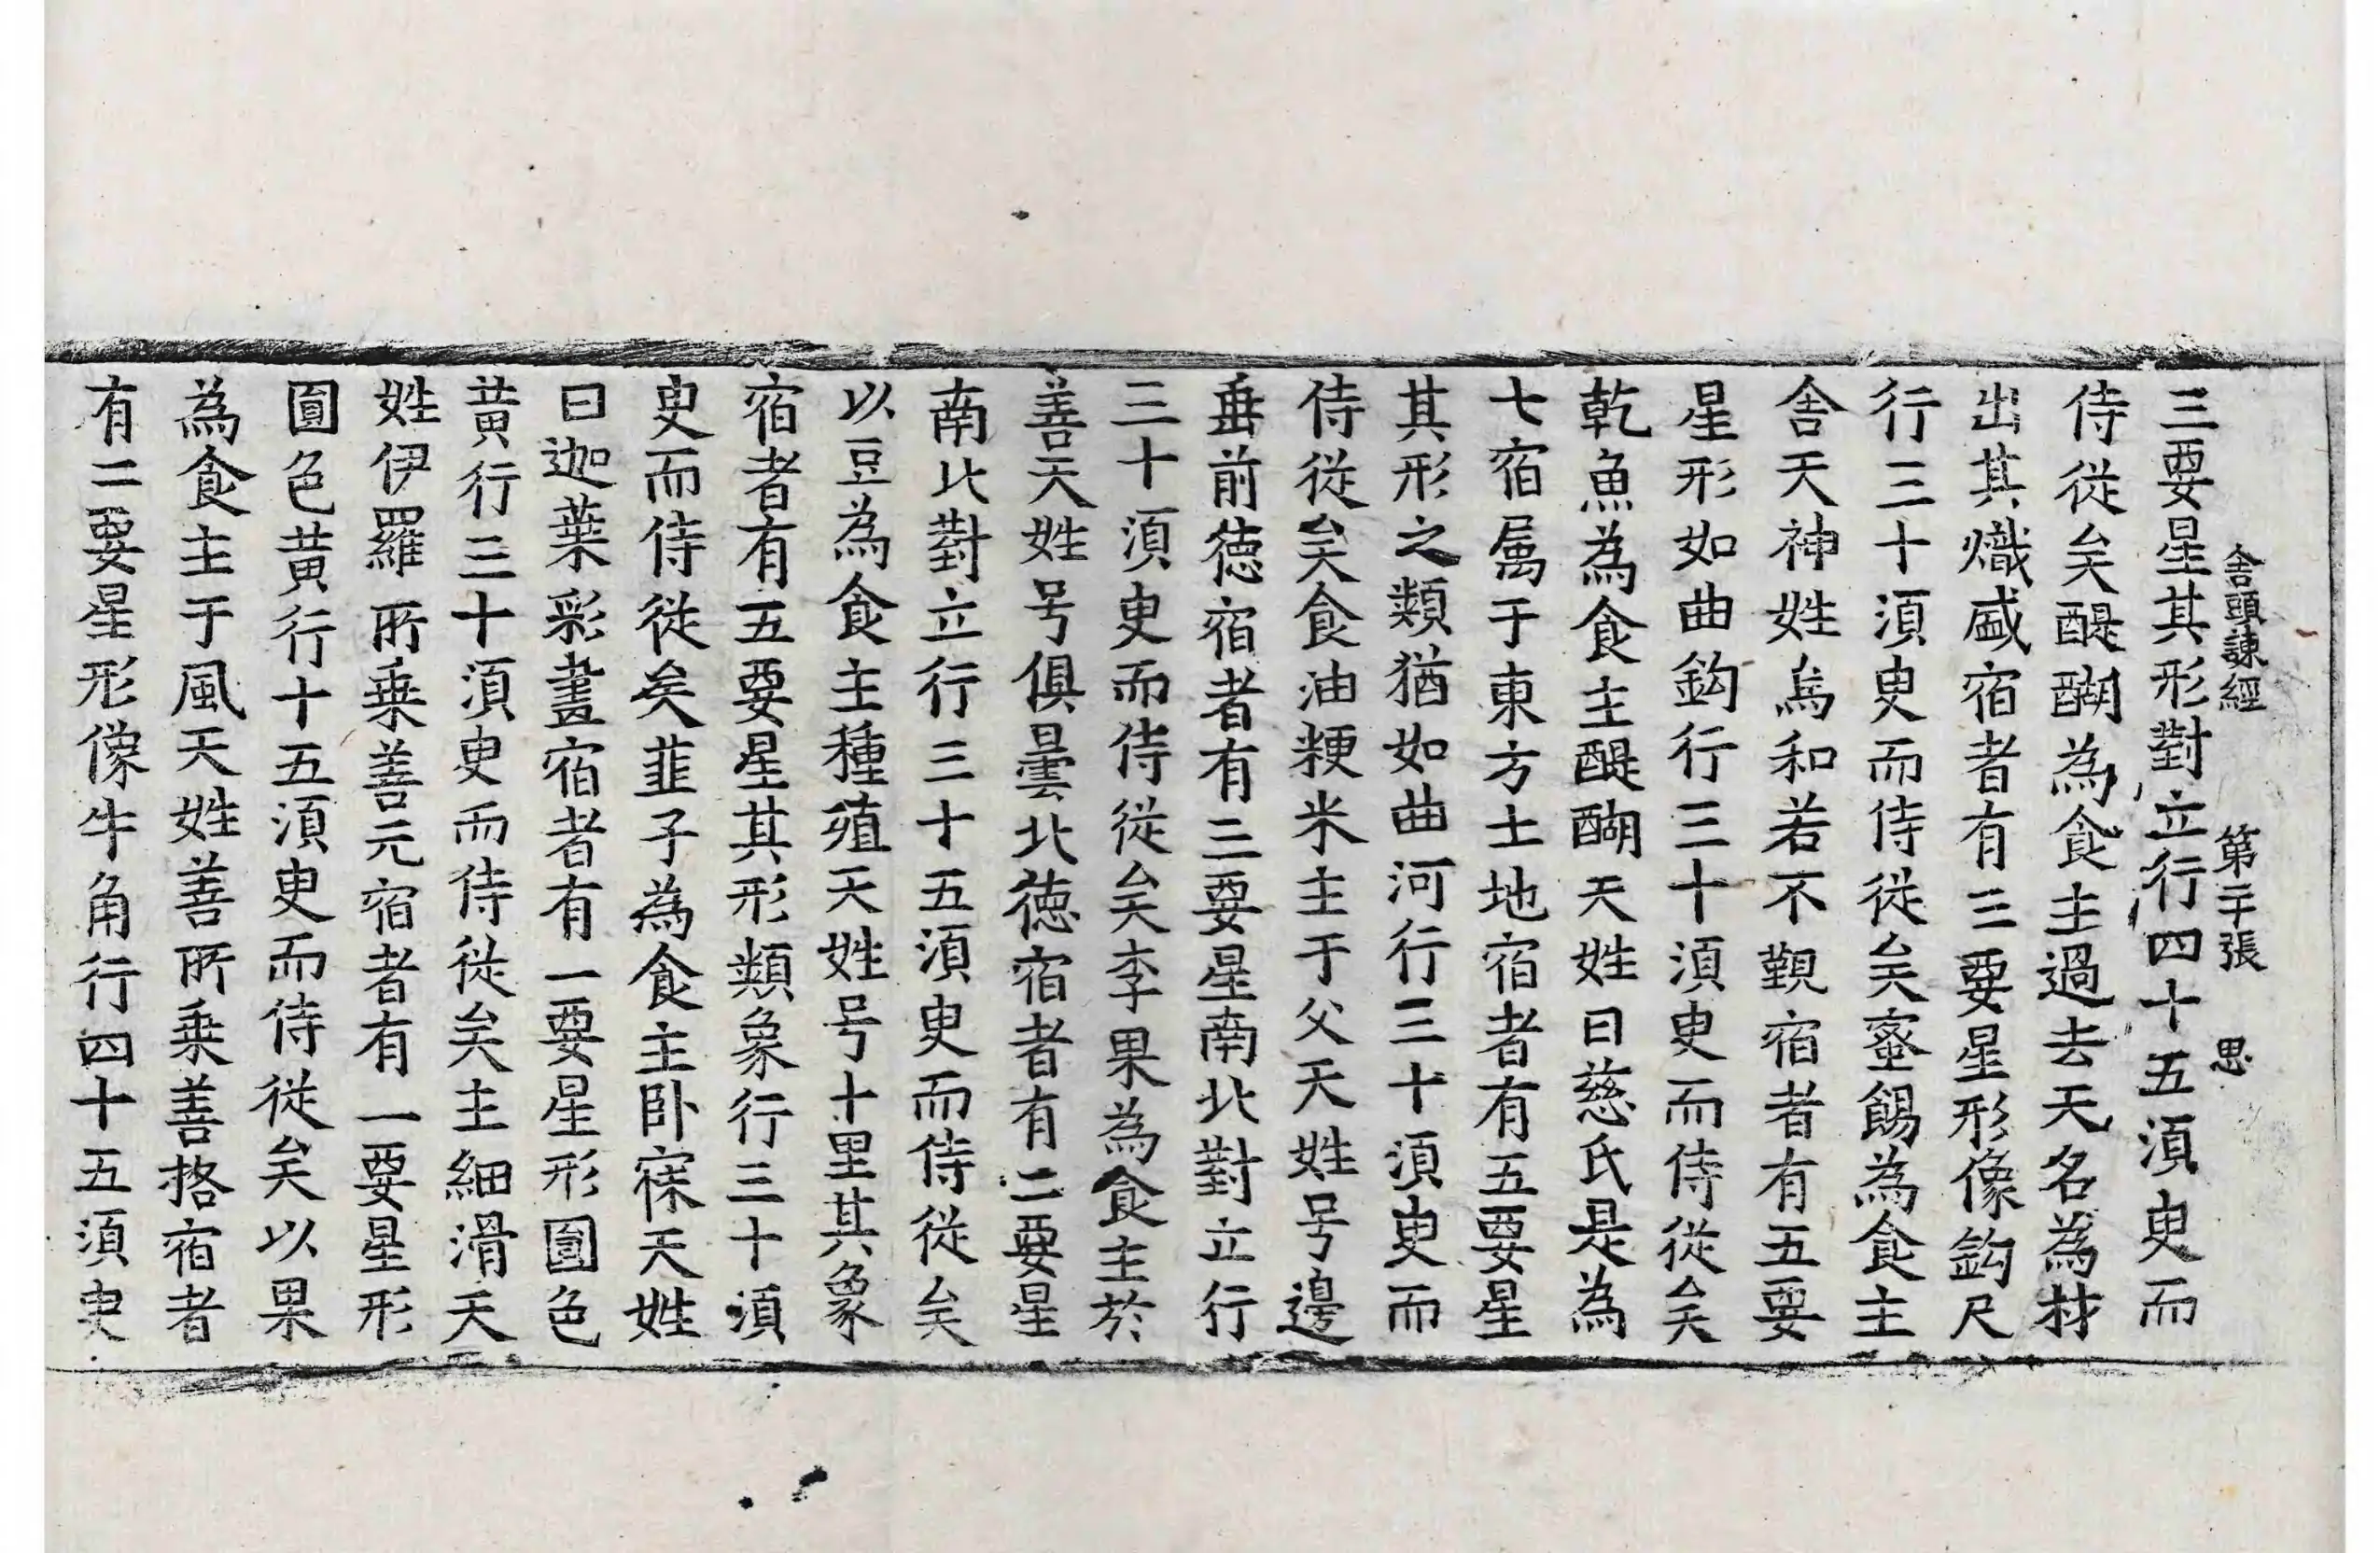 舍頭諫經 第二十張 思
三要星其形對立行四十五須臾而
侍從矣醍醐為食主過去天名為材
出其熾盛宿者有三要星形像鈎尺
行三十須臾而侍從矣蜜餳為食主
舍天神姓烏和若不覲宿者有五要
星形如曲鈎行三十須臾而侍從矣
乾魚為食主醍醐天姓曰慈氏是為
七宿属于東方土地宿者有五要星
其形之類猶如曲河行三十須臾而
侍從矣食油粳米主于父天姓号邊
垂前徳宿者有三要星南北對立行
三十須臾而侍從矣李果為食主於
善天姓号俱曇北徳宿者有二要星
南北對立行三十五須臾而侍從矣
以豆為食主種殖天姓号十里其象
宿者有五要星其形類象行三十須
臾而侍從矣韮子為食主卧寐天姓
曰迦葉彩畫宿者有一要星形圓色
黄行三十須臾而侍從矣主細滑天
姓伊羅所乗善元宿者有一要星形
圓色黄行十五須臾而侍從矣以果
為食主于風天姓善所乗善挌宿者
有二要星形像牛角行四十五須臾